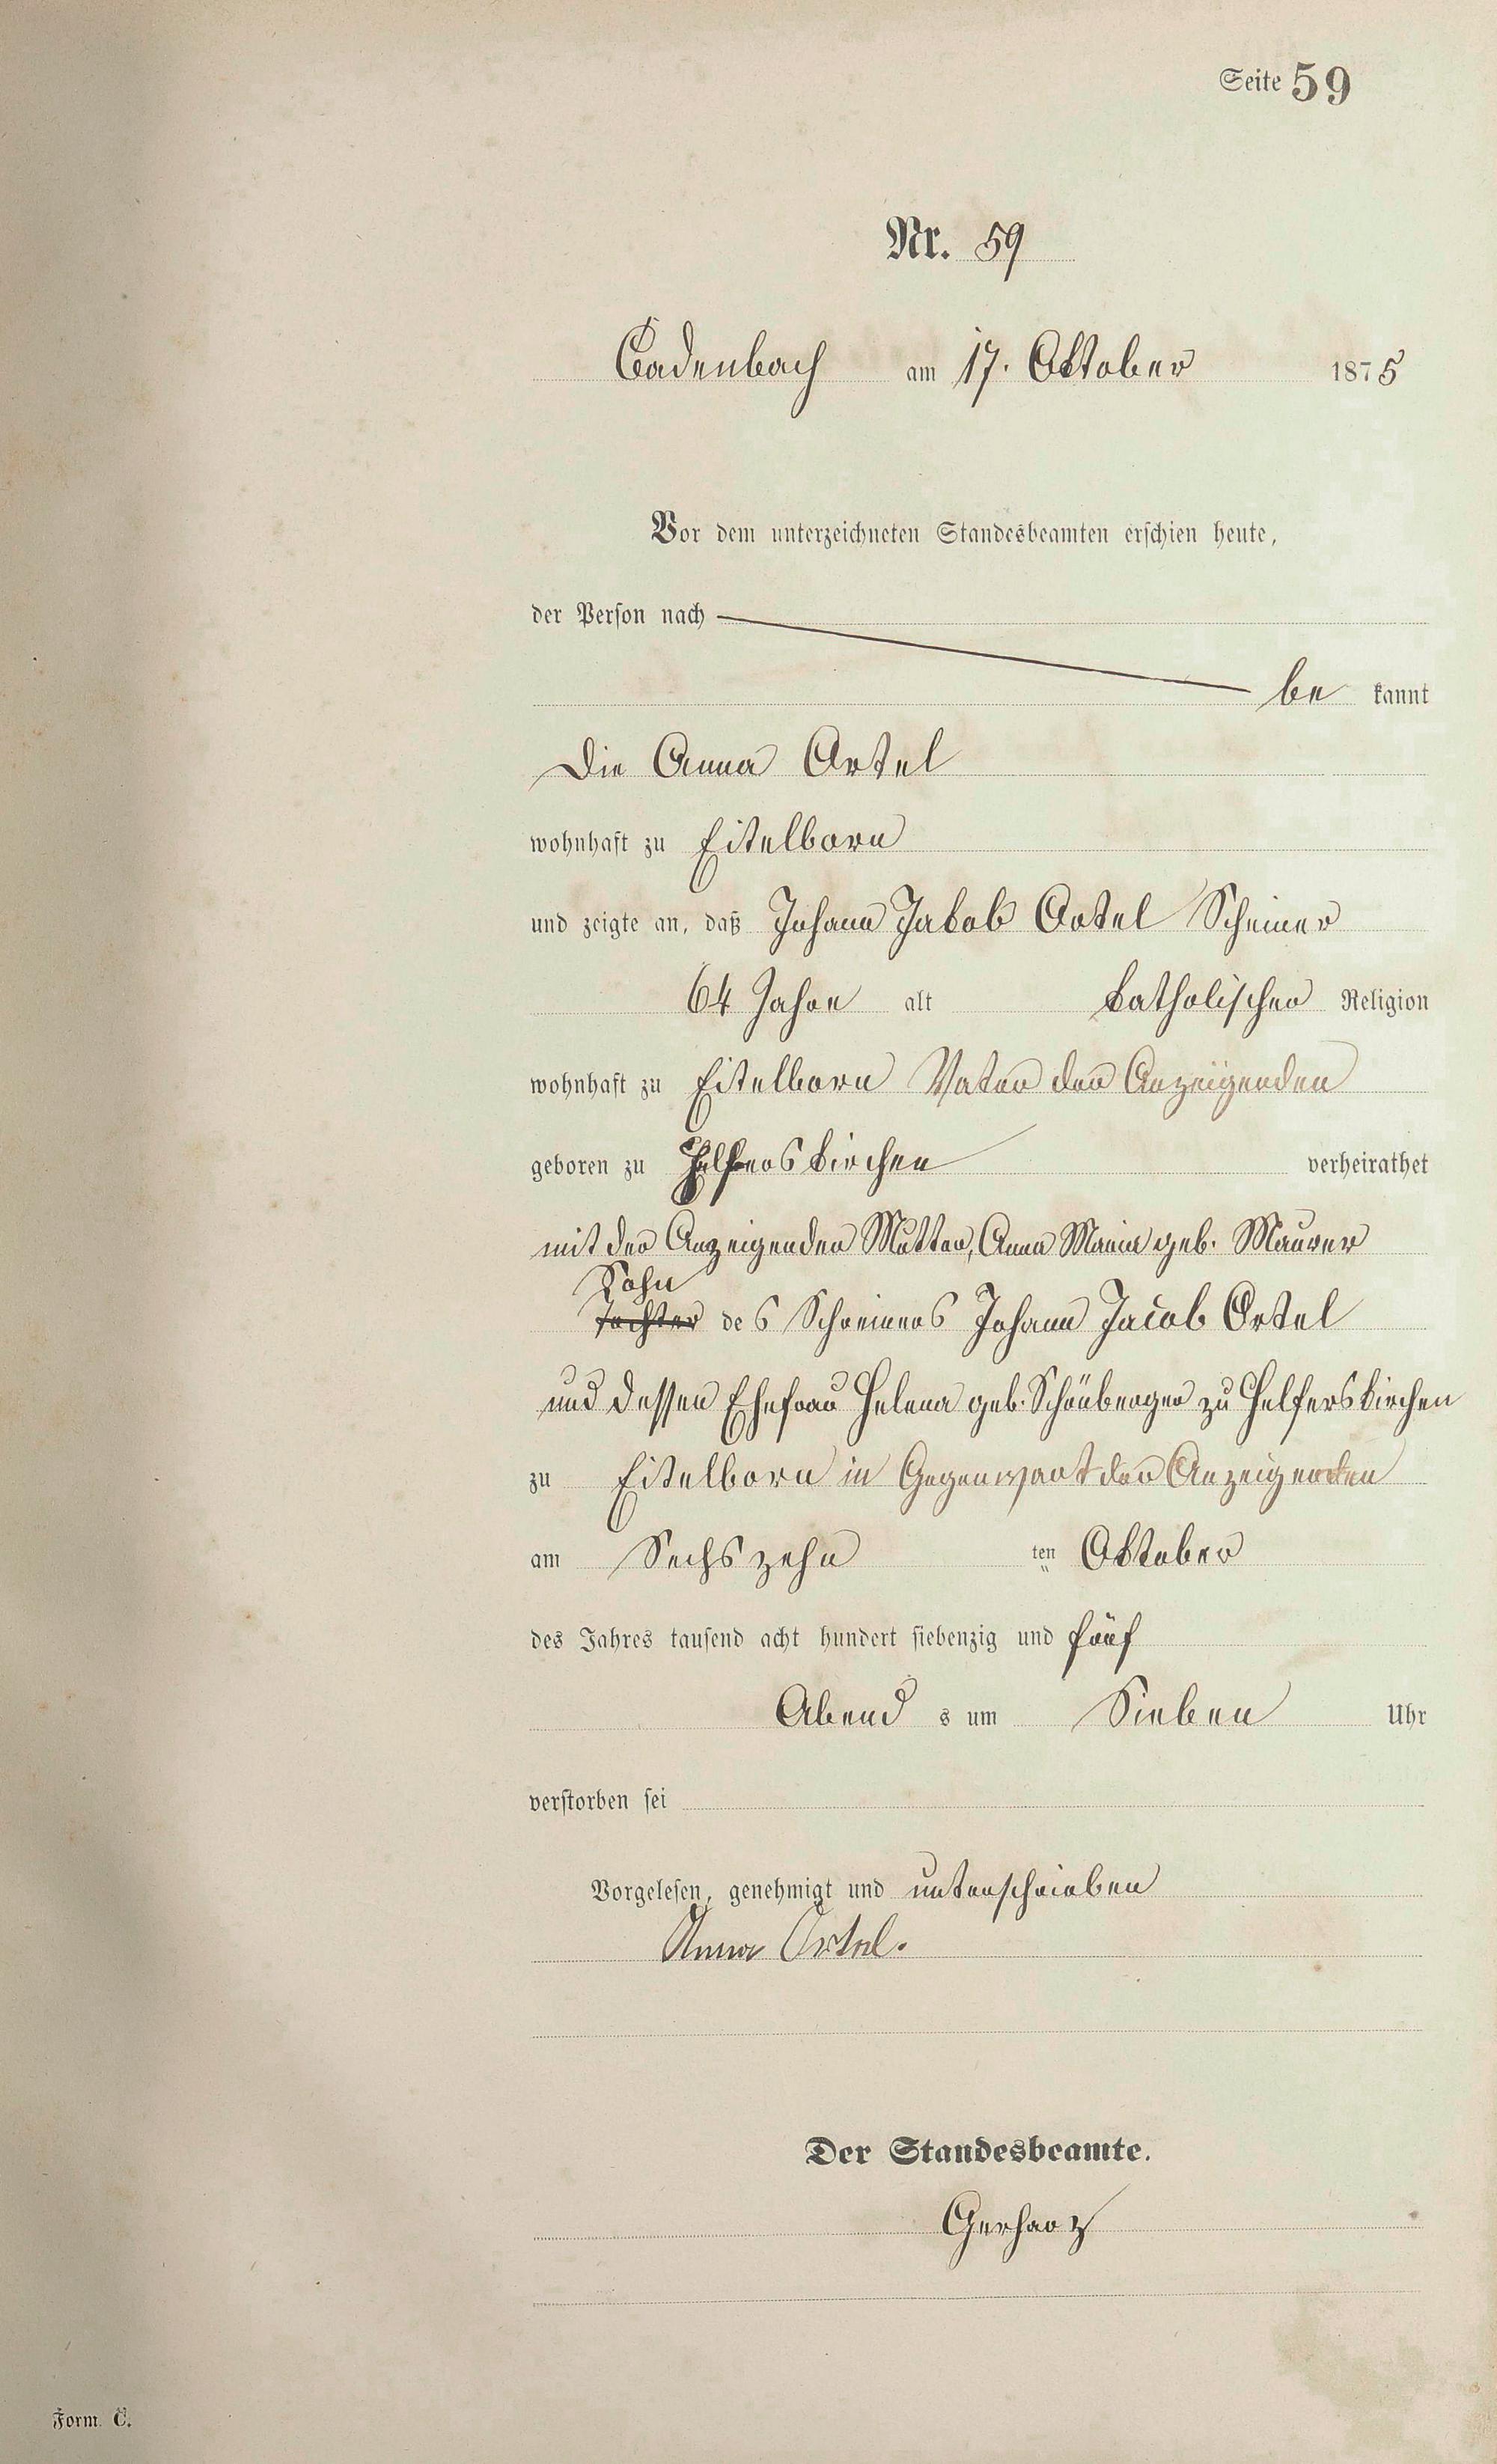 Seite 59
Nr. 59
Cadenbach am 17. Oktober 1875
Vor dem unterzeichneten Standesbeamten erschien heute,
der Person nach
be kannt
Die Anna Ortel
wohnhaft zu Eitelborn
und zeigte an, daß Johann Jakob Ortel Scheiner
64 Jahre alt katholischer Religion
wohnhaft zu Eitelborn Vater der Anzeigenden
geboren zu Helferskirchen verheirathet
mit der Anzeigenden Mutter, Anna Maria geb. Maurer
Sohn
Tochter des Schreiners Johann Jacob Ortel
und dessen Ehefrau Helena geb. Schönberger zu Helferskirchen
zu Eitelborn in Gegenwart der Anzeigenden
am Sechszehn ten Oktober
des Jahres tausend acht hundert siebenzig und fünf
Abend s um Sieben Uhr
verstorben sei
Vorgelesen, genehmigt und unterschrieben
Anna Ortel.
Der Standesbeamte.
Gerharz
Form. C.